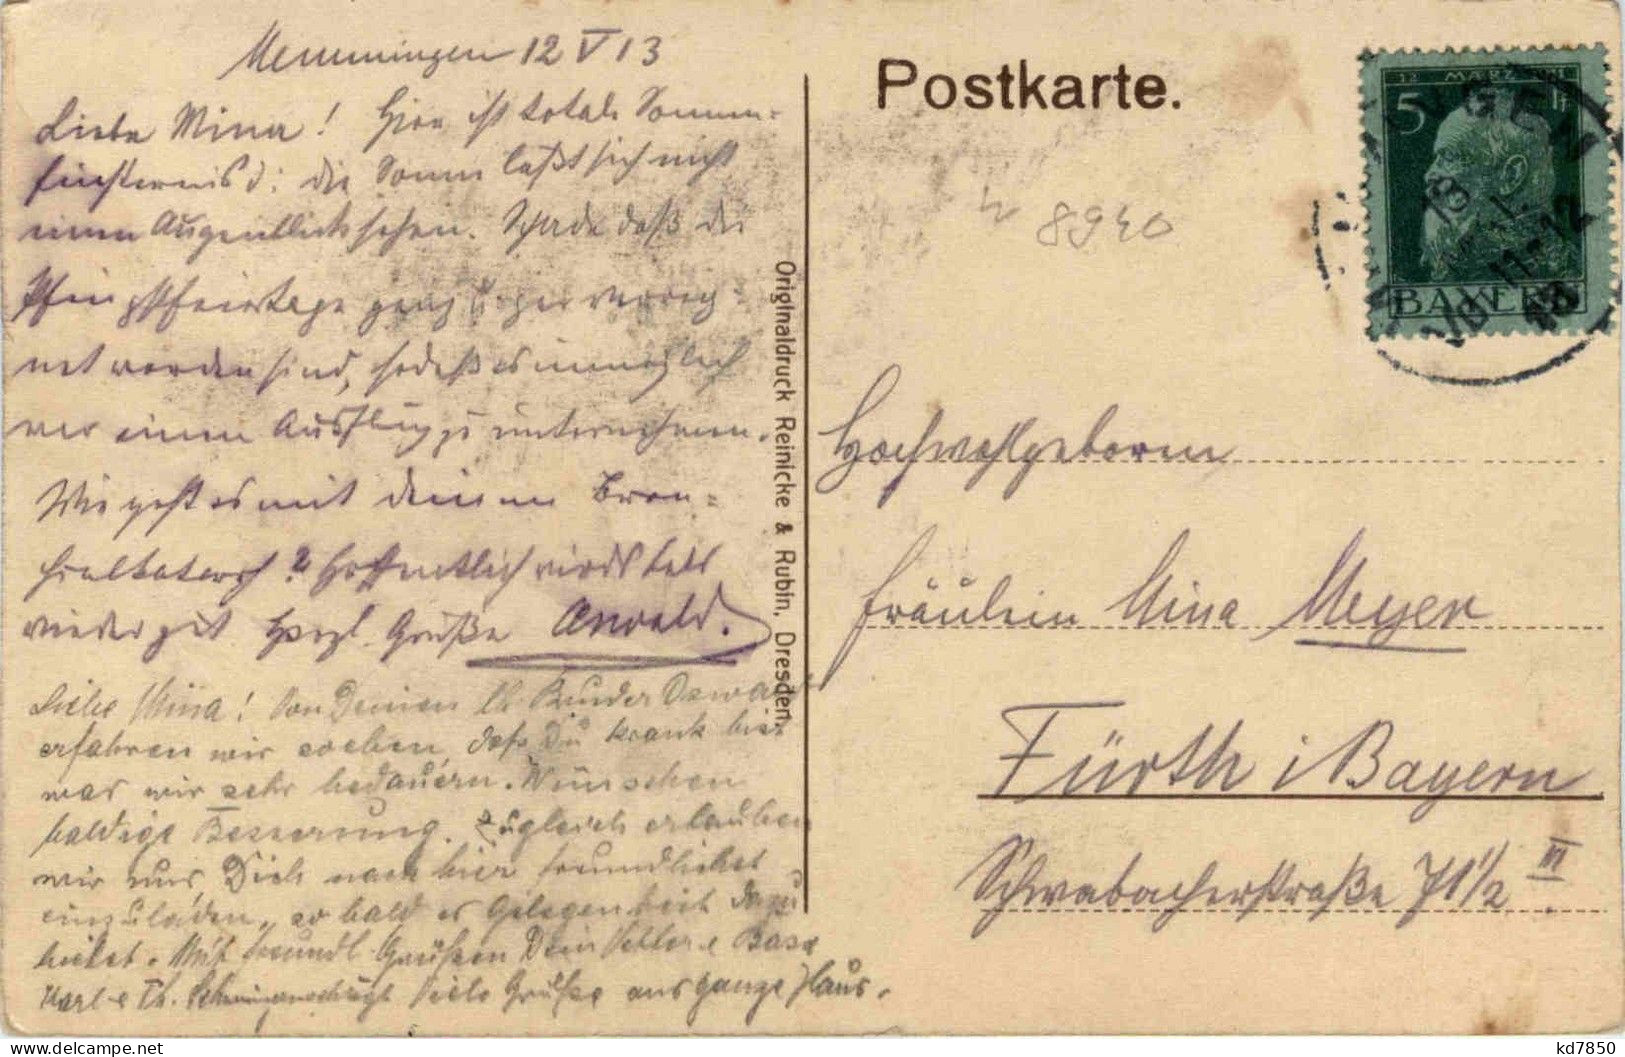 Memmingen 12 V 13
Liebe Mina! Hier ist totale Sonnen-
finsternis d: die Sonne läßt sich nicht
einen Augenblick sehen. Schade daß die
Pfingstfeiertage ganz verreg-
net worden sind, sodaß es unmöglich
war einen Ausflug zu unternehmen.
Wie geht es mit deinem Bron-
chialkatarrh? Hoffentlich wirds bald
wieder gut Herzl. Grüße Oswald.
Liebe Mina! Von Deinen lb. Bruder Oswald
erfahren wir soeben, daß Du krank bist
was wir sehr bedauern. Wünschen
baldige Besserung. Zugleich erlauben
wir uns, Dich nach hier freundlichst
einzuladen, so bald es Gelegenheit dazu
bietet. Mit freundl. Grüßen Dein Vetter e Base
Karl e Th. Viele Grüße ans ganze Haus.
Originaldruck Reinicke & Rubin, Dresden.
Postkarte.
8940
12 MÄRZ 1911
5 Pf
BAYERN
Hochwohlgeboren
Fräulein Mina Meyer
Fürth i Bayern
Schwabacherstraße 71 1/2 III
kd7850